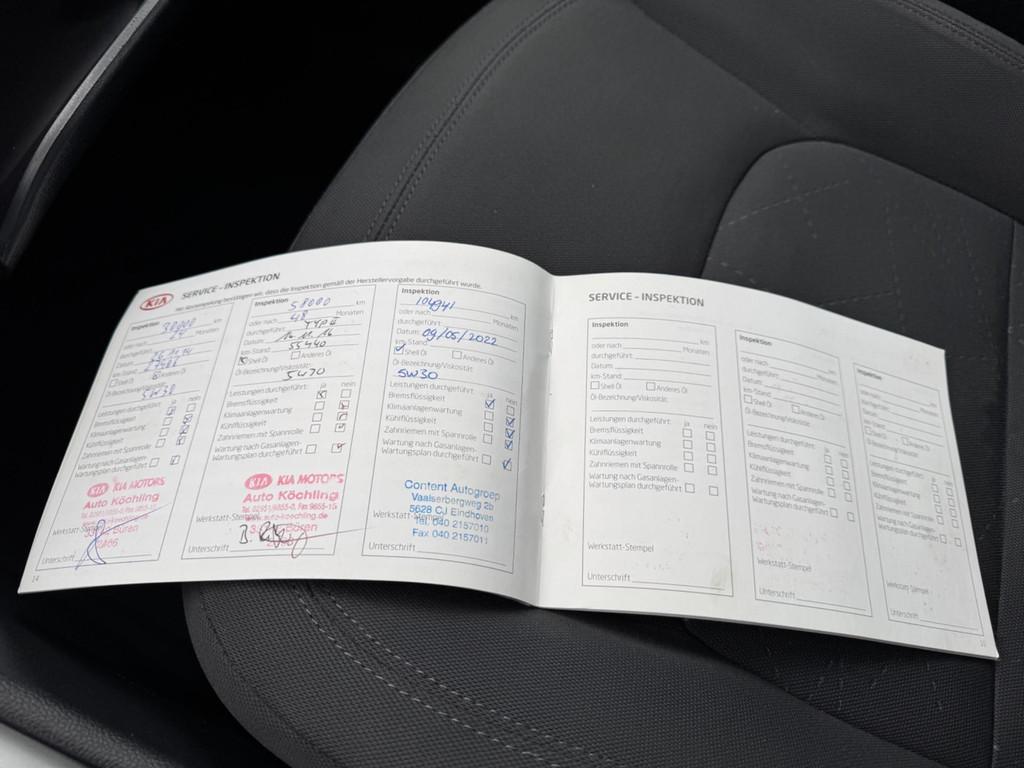 KIA SERVICE – INSPEKTION
Hersteller­vorgabe durchgeführt wurde.
Inspektion 30000 km
oder nach Monaten
durchgeführt
Datum
km-Stand
Shell Öl Anderes Öl
Öl-Bezeichnung/Viskosität
5W30
Leistungen durchgeführt: ja nein
Bremsflüssigkeit
Klimaanlagenwartung
Kühlflüssigkeit
Zahnriemen mit Spannrolle
Wartung nach Gasanlagen-
Wartungsplan durchgeführt
KIA KIA MOTORS
Auto Köchling
Werkstatt-Stempel
Büren
Unterschrift
14
Inspektion 58000 km
oder nach 48 Monaten
durchgeführt:
Datum 16.11.16
km-Stand 55440
Shell Öl Anderes Öl
Öl-Bezeichnung/Viskosität:
5W30
Leistungen durchgeführt: ja nein
Bremsflüssigkeit
Klimaanlagenwartung
Kühlflüssigkeit
Zahnriemen mit Spannrolle
Wartung nach Gasanlagen-
Wartungsplan durchgeführt
KIA KIA MOTORS
Auto Köchling
www.auto-koechling.de
Werkstatt-Stempel
Büren
Unterschrift
Inspektion
104941 km
oder nach Monaten
durchgeführt
Datum: 09/05/2022
km-Stand
Shell Öl Anderes Öl
Öl-Bezeichnung/Viskosität:
5W30
Leistungen durchgeführt: ja nein
Bremsflüssigkeit
Klimaanlagenwartung
Kühlflüssigkeit
Zahnriemen mit Spannrolle
Wartung nach Gasanlagen-
Wartungsplan durchgeführt
Content Autogroep
Vaalserbergweg 2b
5628 CJ Eindhoven
Werkstatt-Stempel
Tel. 040 2157010
Fax 040 2157011
Unterschrift
SERVICE – INSPEKTION
Inspektion
km
oder nach Monaten
durchgeführt:
Datum
km-Stand
Shell Öl Anderes Öl
Öl-Bezeichnung/Viskosität:
Leistungen durchgeführt: ja nein
Bremsflüssigkeit
Klimaanlagenwartung
Kühlflüssigkeit
Zahnriemen mit Spannrolle
Wartung nach Gasanlagen-
Wartungsplan durchgeführt
Werkstatt-Stempel
Unterschrift
Inspektion
km
oder nach Monaten
durchgeführt:
Datum
km-Stand
Shell Öl Anderes Öl
Öl-Bezeichnung/Viskosität:
Leistungen durchgeführt: ja nein
Bremsflüssigkeit
Klimaanlagenwartung
Kühlflüssigkeit
Zahnriemen mit Spannrolle
Wartung nach Gasanlagen-
Wartungsplan durchgeführt
Werkstatt-Stempel
Unterschrift
Inspektion
km
oder nach Monaten
durchgeführt:
Datum
km-Stand
Shell Öl Anderes Öl
Öl-Bezeichnung/Viskosität:
Leistungen durchgeführt: ja nein
Bremsflüssigkeit
Klimaanlagenwartung
Kühlflüssigkeit
Zahnriemen mit Spannrolle
Wartung nach Gasanlagen-
Wartungsplan durchgeführt
Werkstatt-Stempel
Unterschrift